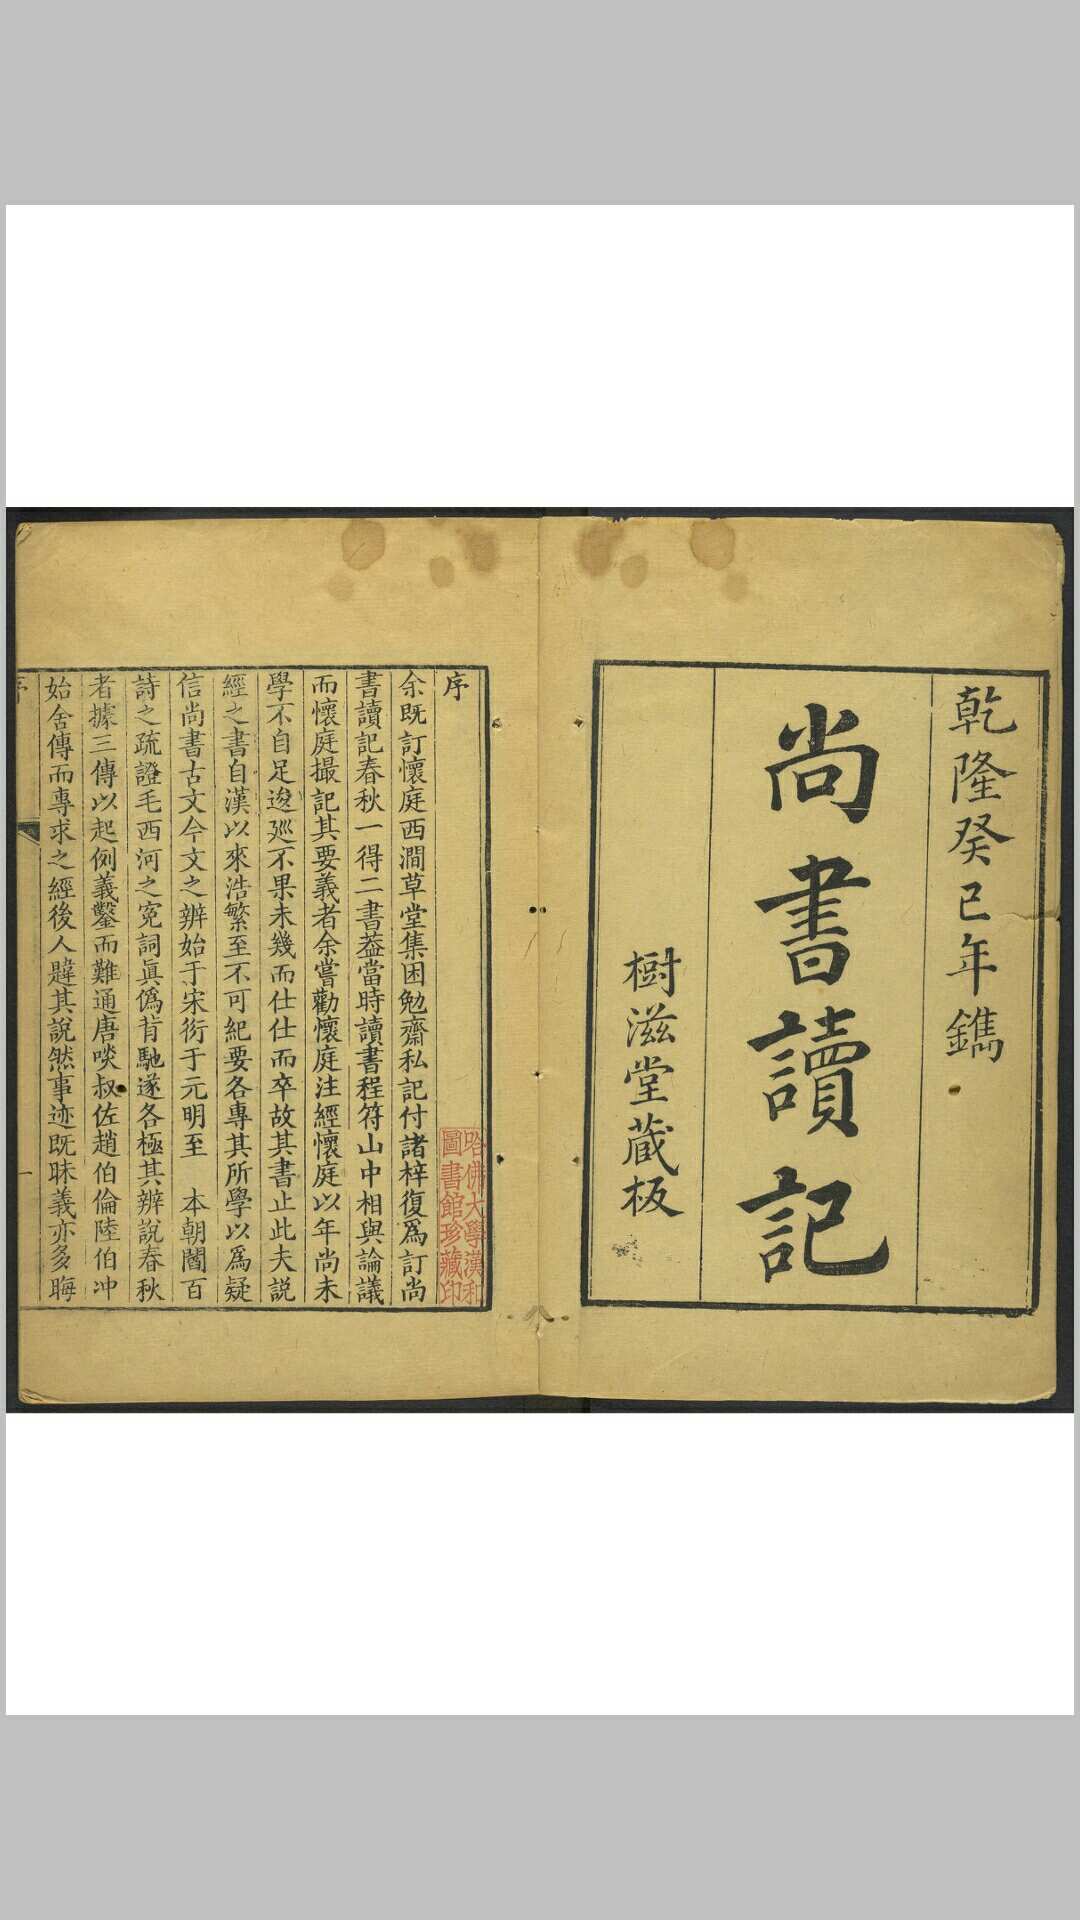 乾隆癸巳年鐫
尚書讀記
樹滋堂藏板
序
哈佛大學漢和
圖書館珍藏印
余既訂懷庭西澗草堂集困勉齋私記付諸梓復爲訂尚
書讀記春秋一得二書葢當時讀書程符山中相與論議
而懷庭撮記其要義者余嘗勸懷庭注經懷庭以年尚未
學不自足逡廵不果未幾而仕仕而卒故其書止此夫説
經之書自漢以來浩繁至不可紀要各專其所學以爲疑
信尚書古文今文之辨始于宋衍于元明至　本朝閻百
詩之疏證毛西河之寃詞眞僞背馳遂各極其辨說春秋
者據三傳以起例義鑿而難通唐啖叔佐趙伯倫陸伯冲
始舍傳而專求之經後人韙其說然事迹既昧義亦多晦
序
一